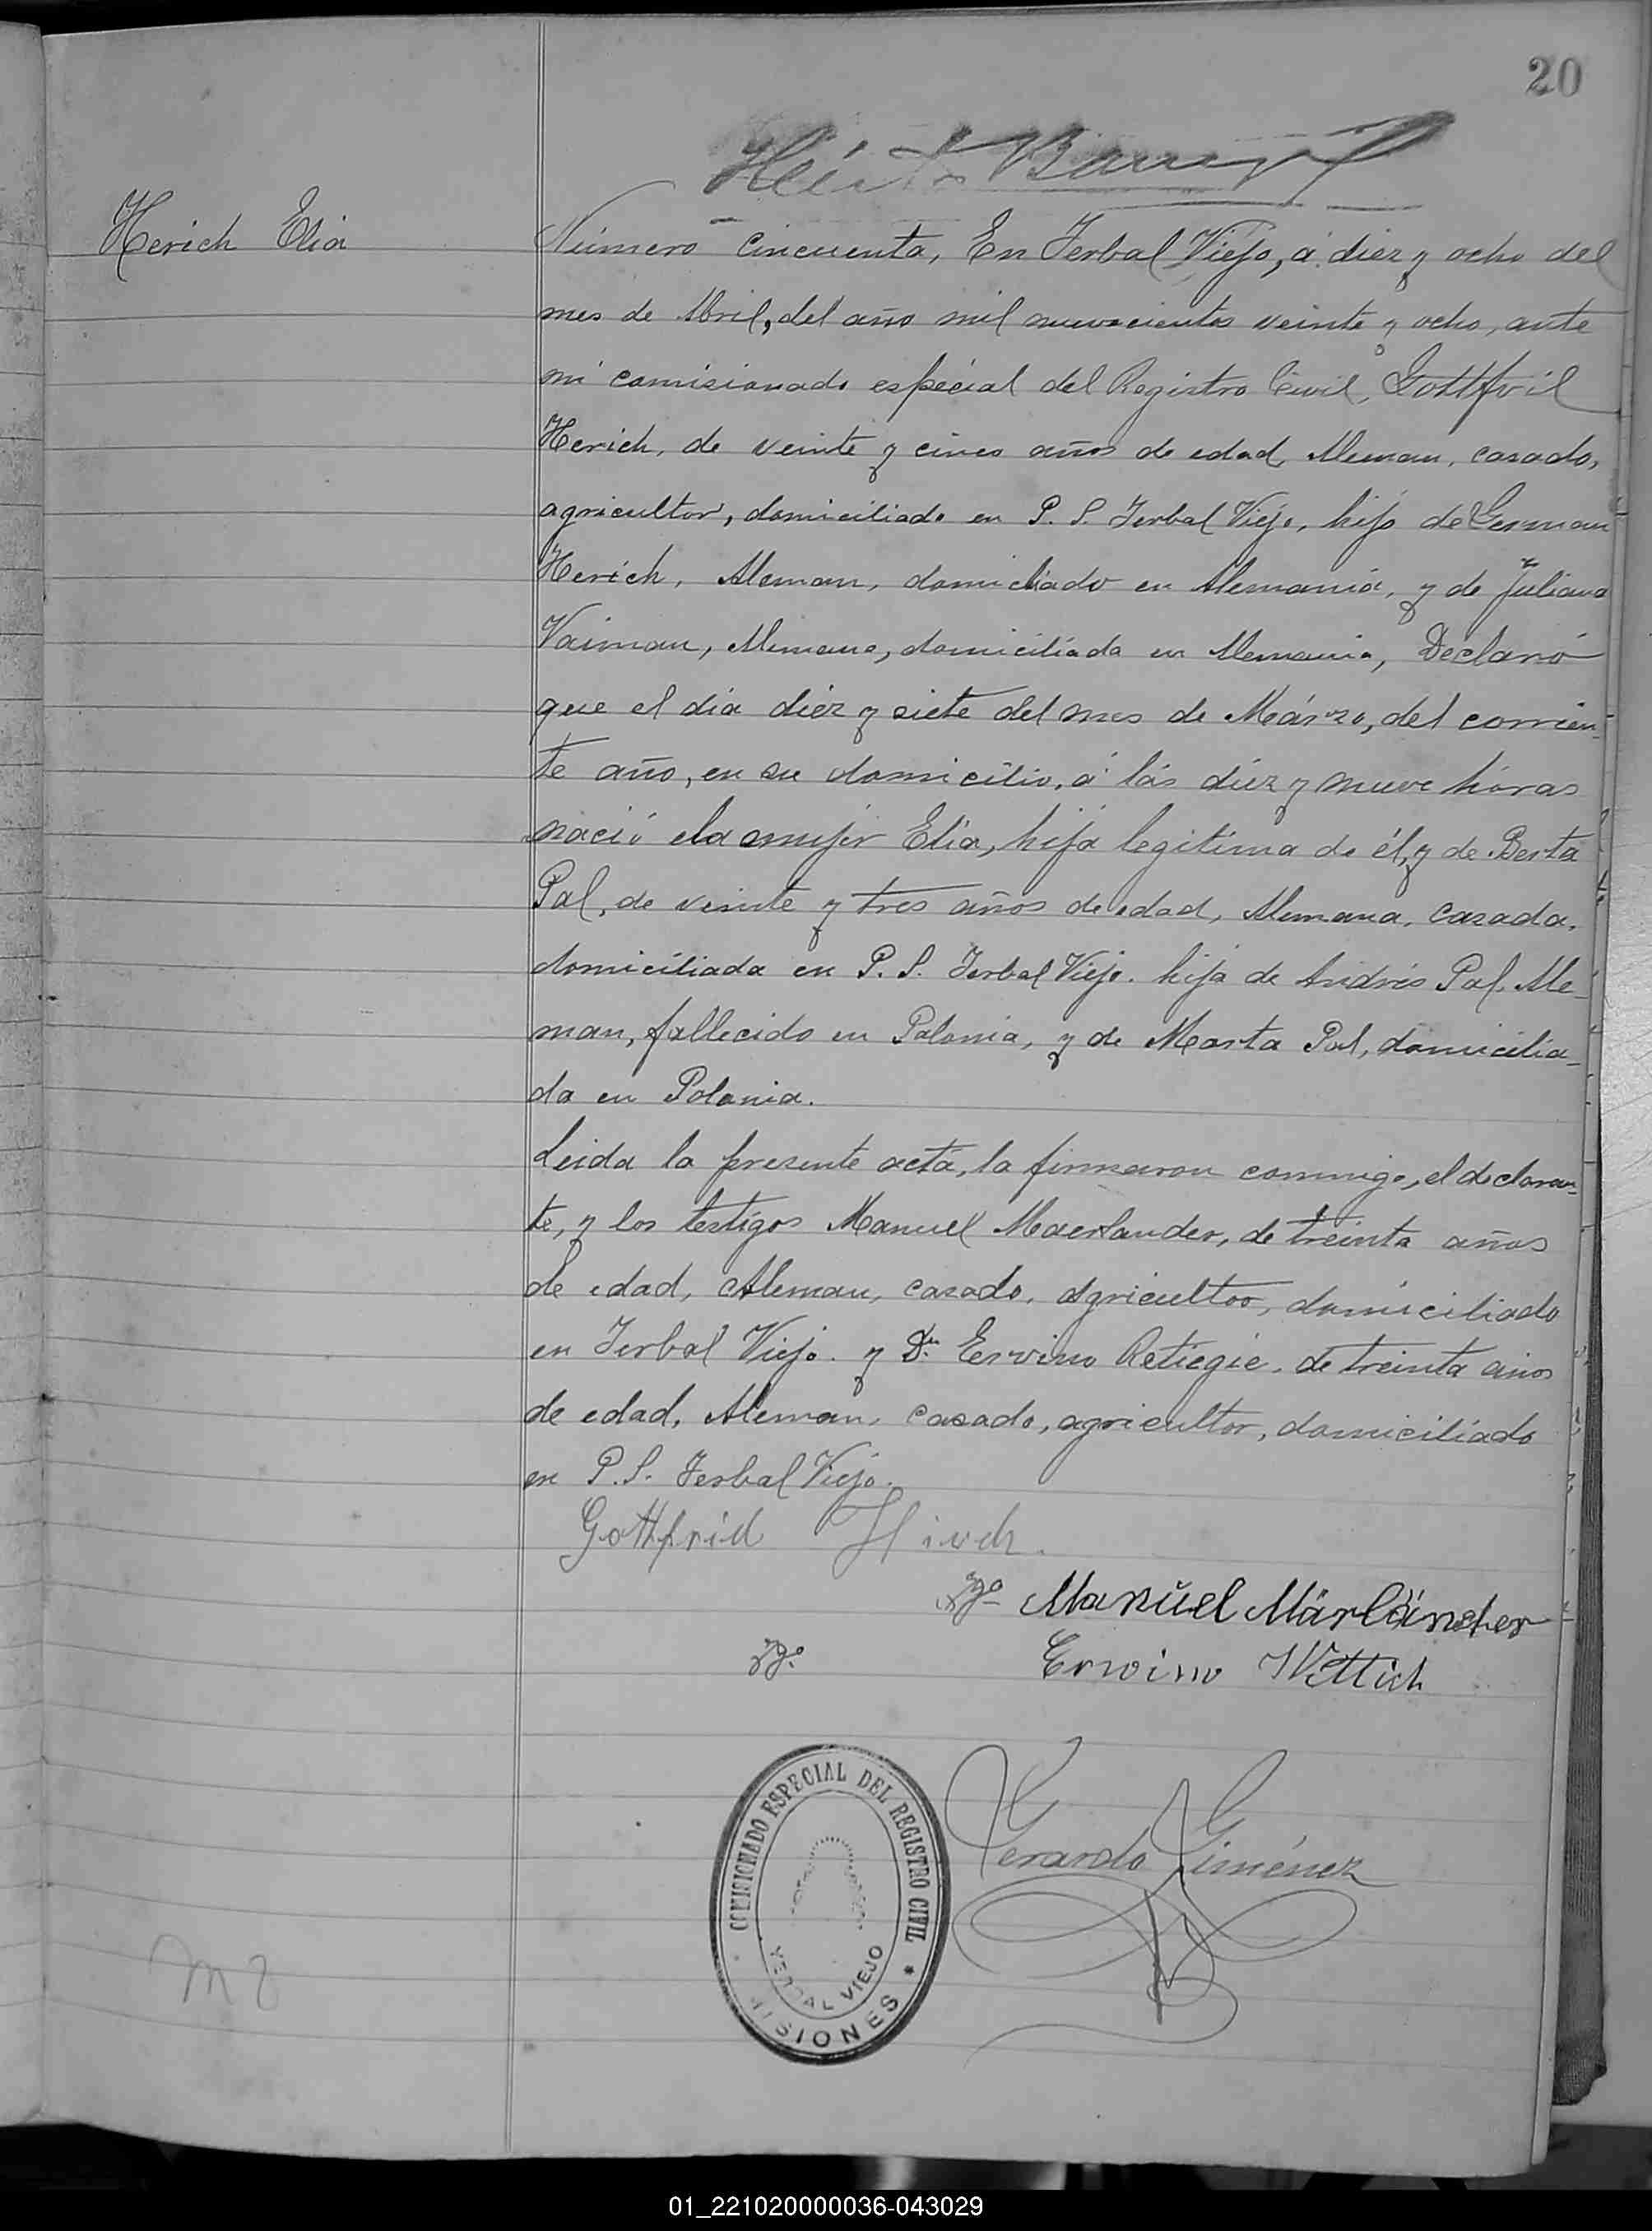 20
Herich Elia
Número cincuenta, En Yerbal Viejo, á diez y ocho del
mes de Abril, del año mil nuevecientos veinte y ocho, ante
mi comisionado especial del Registro Civil, Gottfril
Herich, de veinte y cinco años de edad, Aleman, casado,
agricultor, domiciliado en P. S. Yerbal Viejo, hijo de German
Herich, Aleman, domicliado en Alemania, y de Juliana
Vaiman, Alemana, domiciliada en Alemania, Declaró
que el dia diez y siete del mes de Márzo, del corrien-
te año, en su domicilio, á las diez y nueve horas
nació ela mujer Elia, hija legitima de él, y de Berta
Pal, de veinte y tres años de edad, Alemana, casada,
domiciliada en P. S. Yerbal Viejo. hija de Andrés Pal, Ale-
man, fallecido en Polonia, y de Marta Pal, domicilia-
da en Polonia.
Leida la presente acta, la firmaron conmigo, el declaran-
te, y los testigos Manuel Maerlander, de treinta años
de edad, Aleman, casado, agricultor, domiciliado
en Yerbal Viejo. y Dn Ervino Retiegie, de treinta años
de edad, Aleman, casado, agricultor, domiciliado
en P. S. Yerbal Viejo.
Gottfrid Hirch.
Tgo Manuel Märländer
Tgo. Erwino Wittich
COMISIONADO ESPECIAL DEL REGISTRO CIVIL
YERBAL VIEJO
* MISIONES *
Gerardo Giménez
01_221020000036-043029